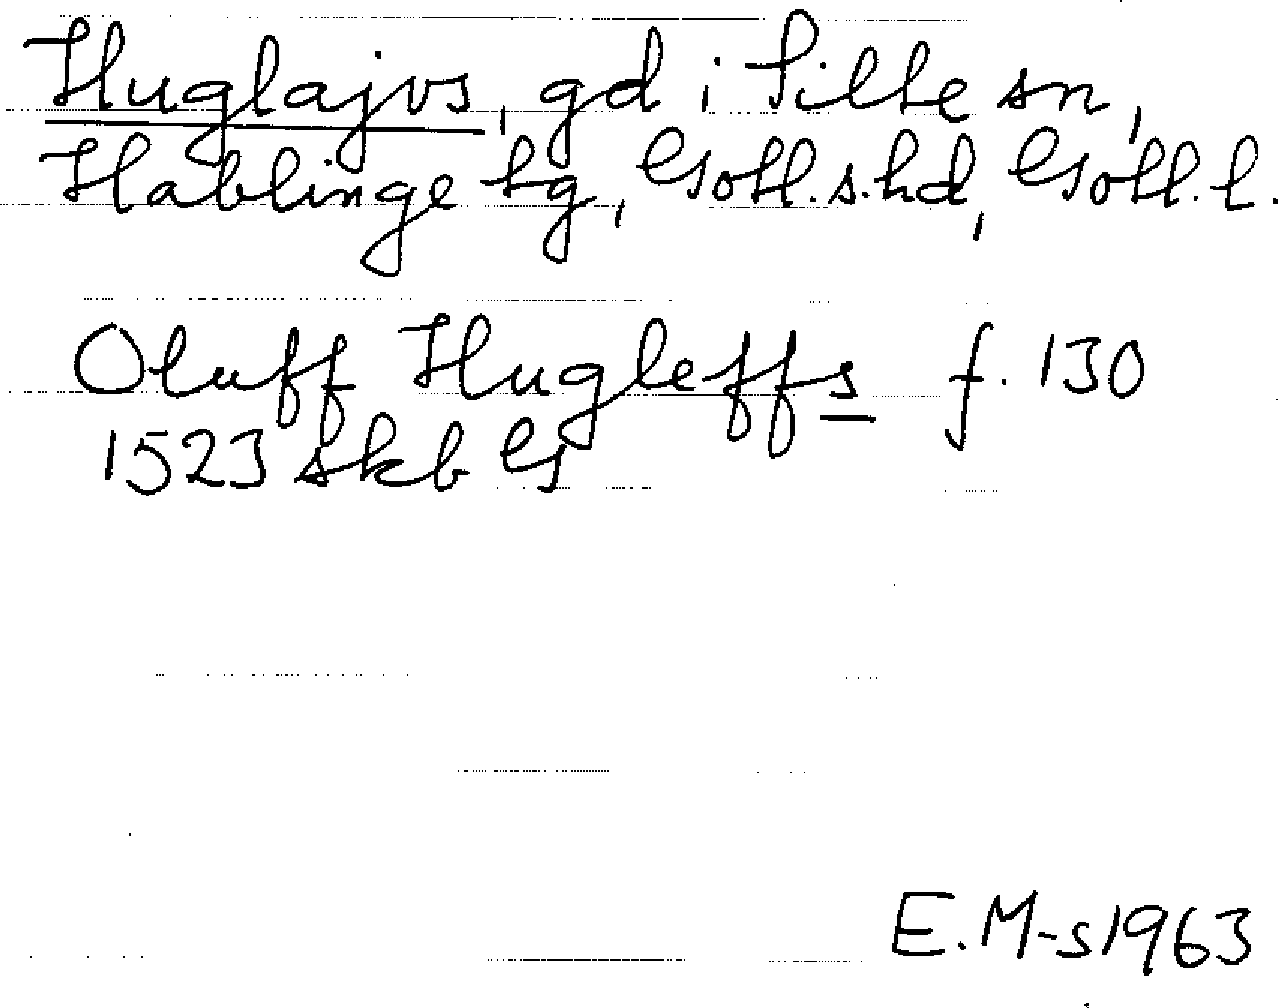 Huglajvs, gd i Silte sn,
Hablinge tg, Gotl.s.hd, Gotl.l.
Oluff Hugleffs f. 130
1523 skb G
E.M-s 1963